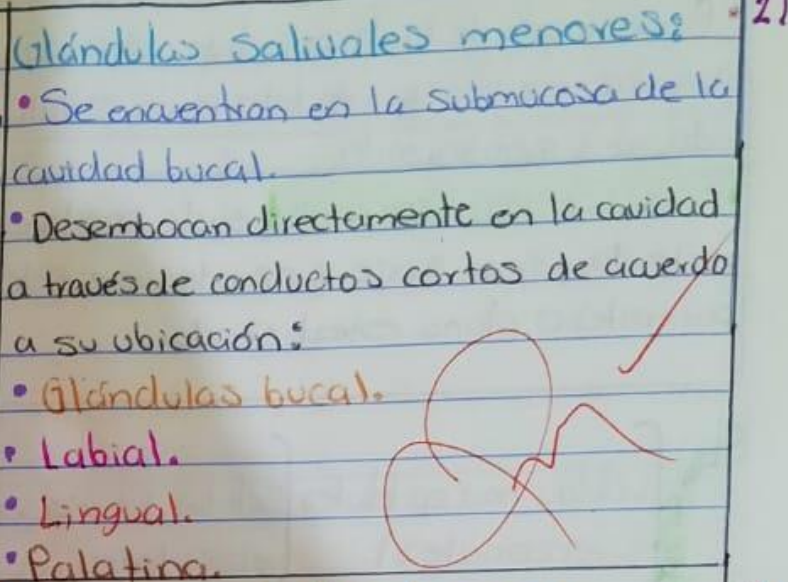 Glándulas salivales menores:
• Se encuentran en la submucosa de la
cavidad bucal.
• Desembocan directamente en la cavidad
a través de conductos cortos de acuerdo
a su ubicación:
• Glándulas bucal.
• Labial.
• Lingual.
• Palatina.